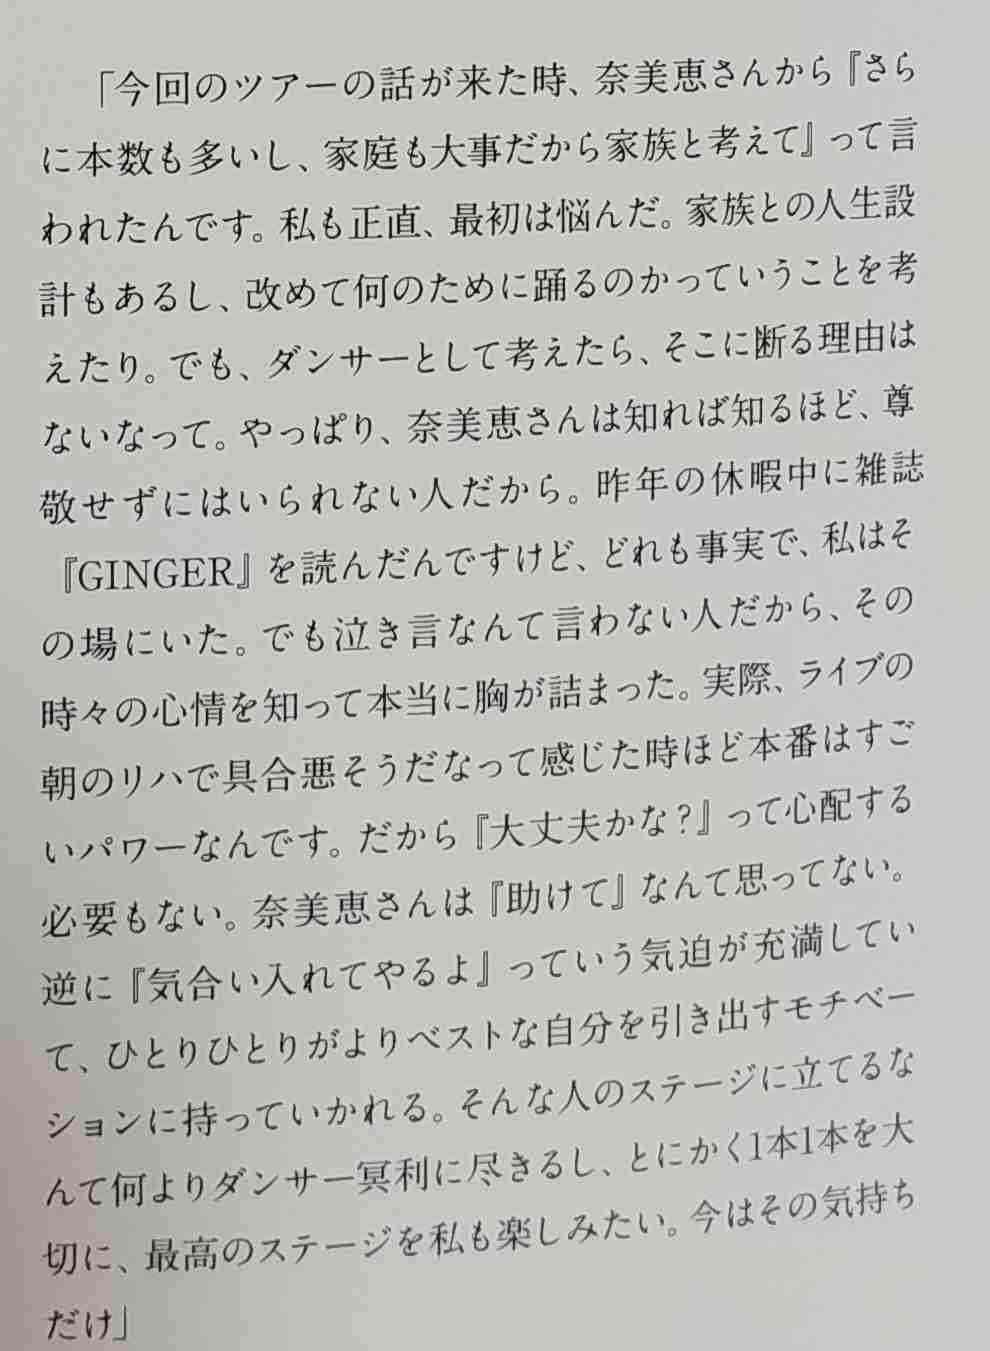 「今回のツアーの話が来た時、奈美恵さんから『さら
に本数も多いし、家庭も大事だから家族と考えて』って言
われたんです。私も正直、最初は悩んだ。家族との人生設
計もあるし、改めて何のために踊るのかっていうことを考
えたり。でも、ダンサーとして考えたら、そこに断る理由は
ないなって。やっぱり、奈美恵さんは知れば知るほど、尊
敬せずにはいられない人だから。昨年の休暇中に雑誌
『GINGER』を読んだんですけど、どれも事実で、私はそ
の場にいた。でも泣き言なんて言わない人だから、その
時々の心情を知って本当に胸が詰まった。実際、ライブの
朝のリハで具合悪そうだなって感じた時ほど本番はすご
いパワーなんです。だから『大丈夫かな?』って心配する
必要もない。奈美恵さんは『助けて』なんて思ってない。
逆に『気合い入れてやるよ』っていう気迫が充満してい
て、ひとりひとりがよりベストな自分を引き出すモチベー
ションに持っていかれる。そんな人のステージに立てるな
んて何よりダンサー冥利に尽きるし、とにかく1本1本を大
切に、最高のステージを私も楽しみたい。今はその気持ち
だけ」